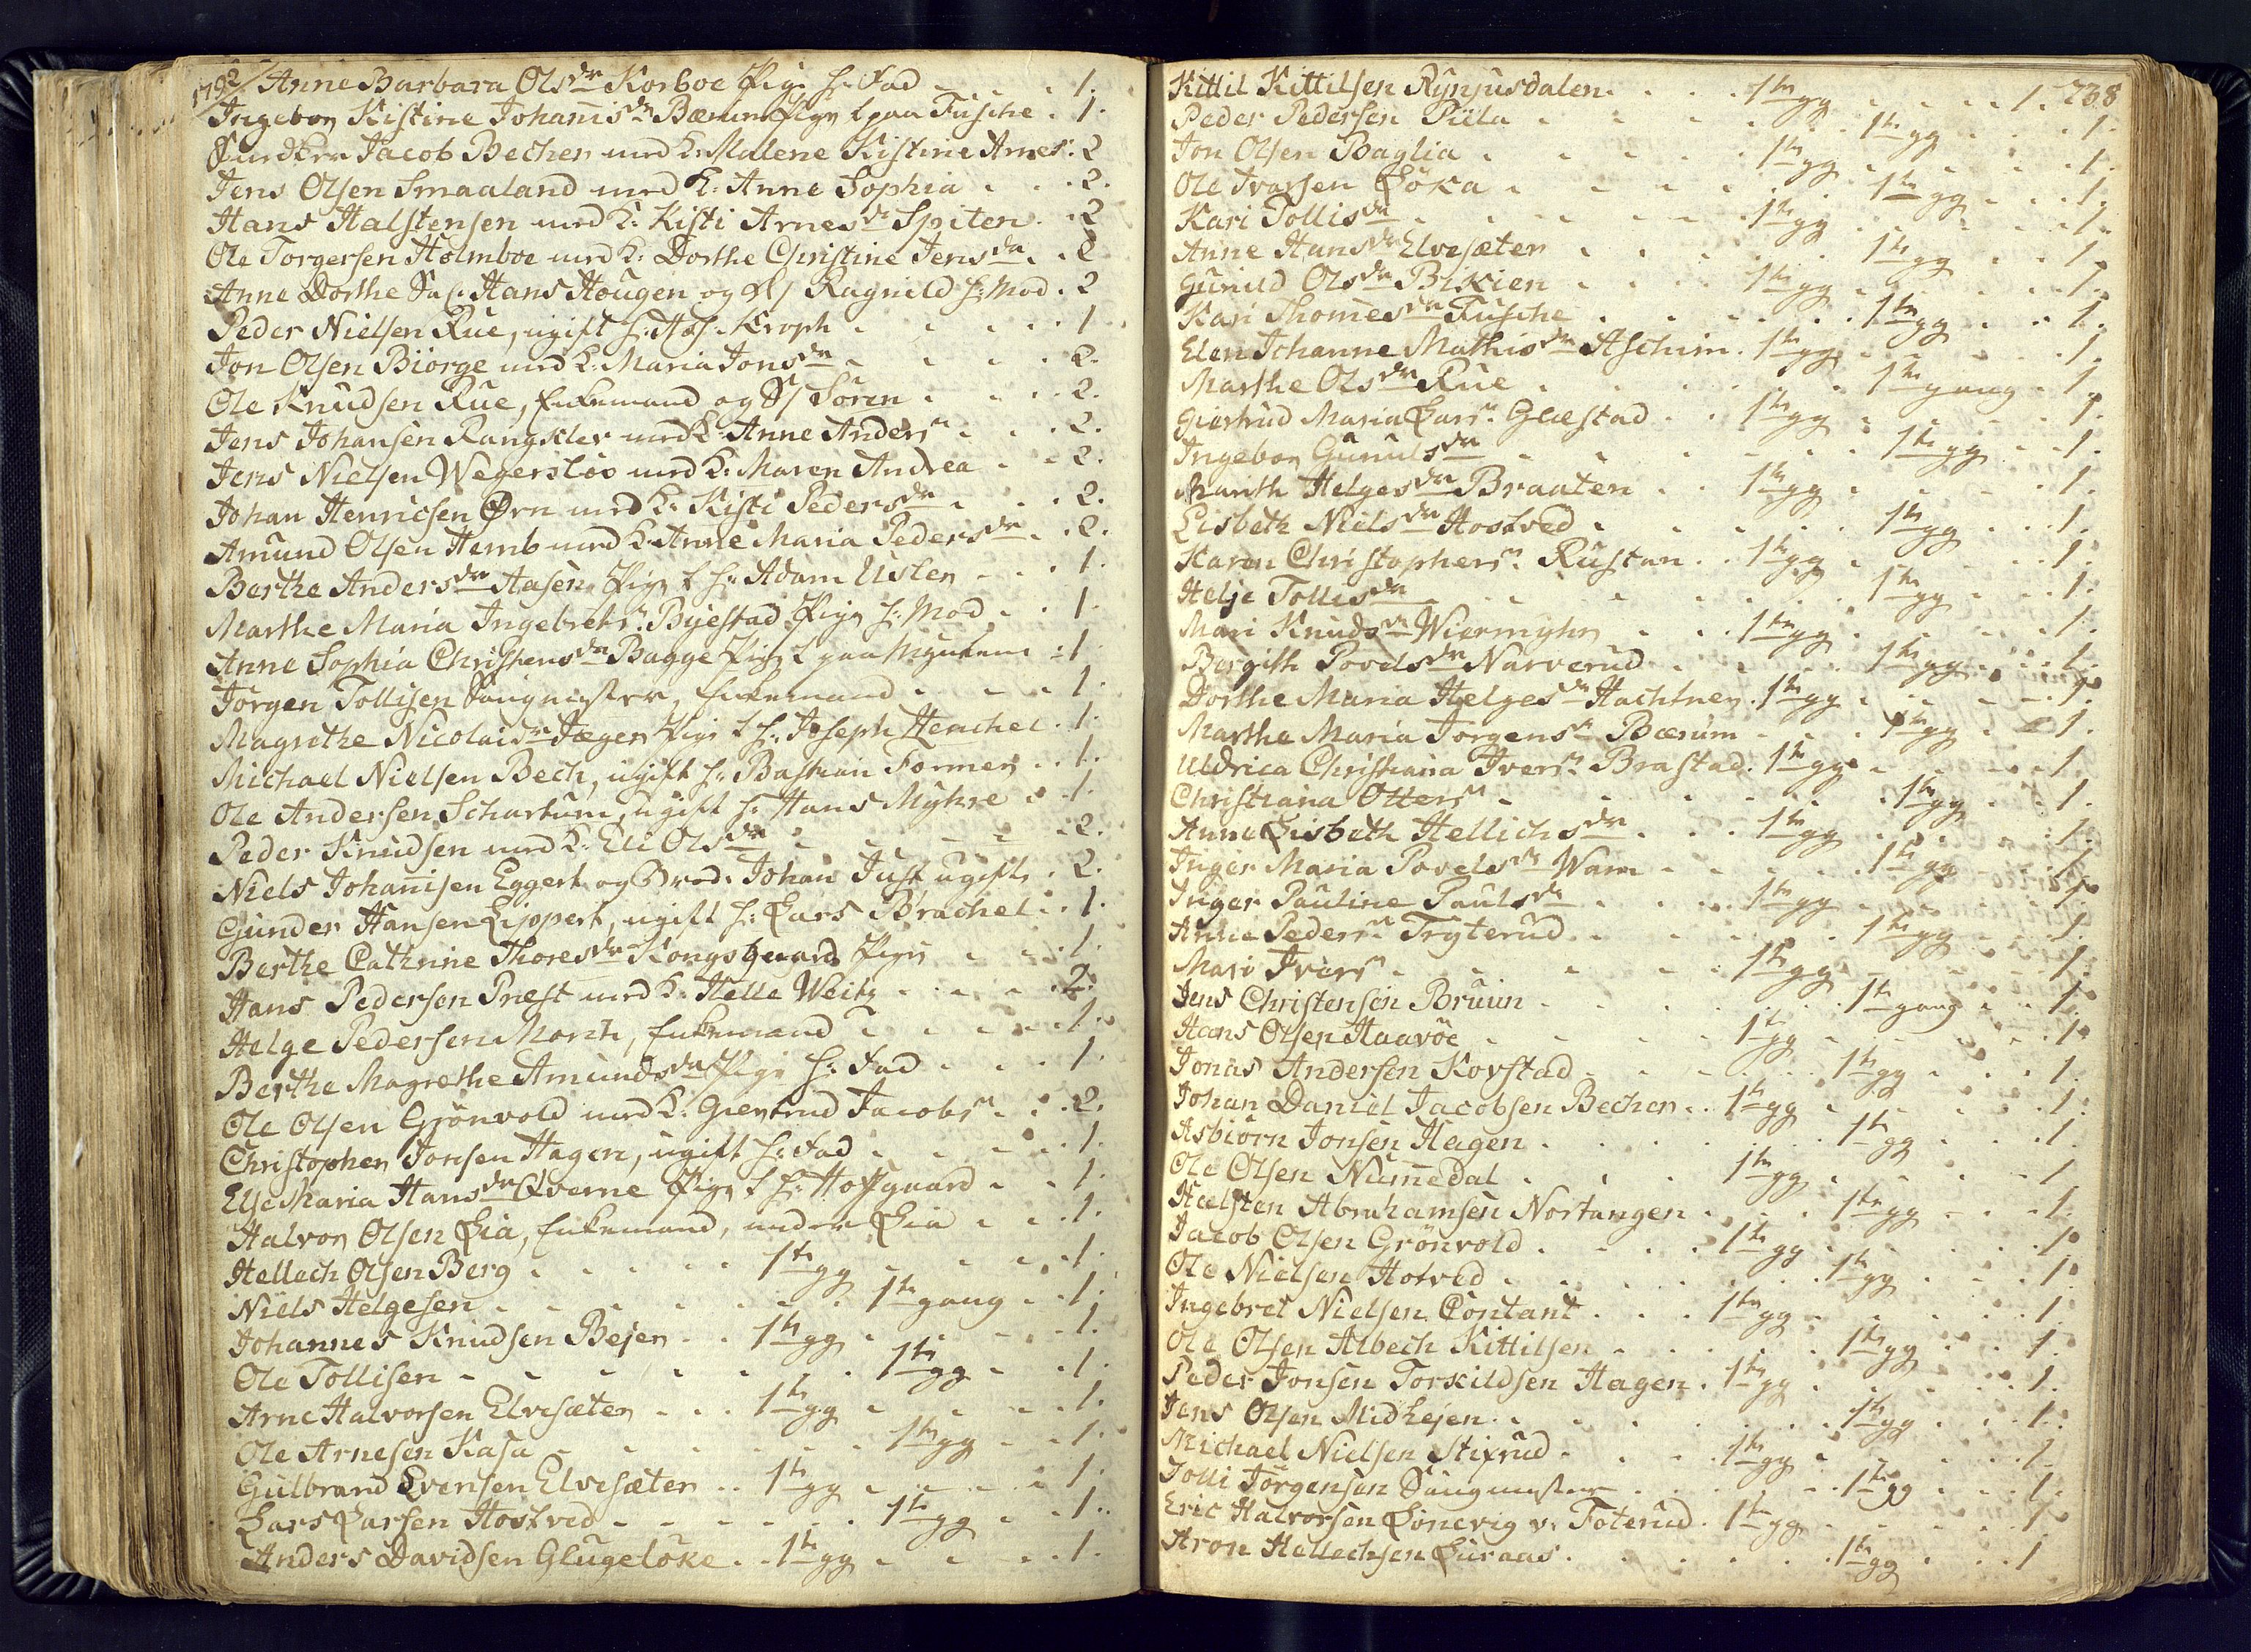 1792/ Anne Barbara Olsdr Korboe Pige h: Fad . . . 1.
Ingebor Kistine Johañisdr Bærum Pige t paa Fusche . 1.
Jacob Becher med K: Malene Kistine Arnesr. 2
Jens Olsen Smaaland med K: Anne Sophia . . . 2.
Hans Halstensen med K: Kisti Arnesdr Spiten . . 2
Ole Torgersen Holmboe med K: Dorthe Christine Jensdr . . 2
Anne Dorthe Sal. Hans Hougen og D/ Ragnild h: Mod . 2
Peder Nielsen Rue, ugift h: Ass. Kroph . . . . 1
Jon Olsen Biörge med K: Maria Jonsdr . . . . 2.
Ole Knudsen Rue, Enkemand og S/ Sören . . . 2.
Jens Johansen Rangkler med K: Anne Andersr . . . 2.
Jens Nielsen Wegerslöv med K: Maren Andrea . . 2.
Johan Henricsen Ørn med K: Kisti Pedersdr . . . 2.
Amund Olsen Hemb med K: Anne Maria Pedersdr . . 2.
Berthe Andersdr Aasen Pige t h: Adam Uslen . . . 1.
Marthe Maria Ingebretsr. Byestad Pige h: Mod . . 1.
Anne Sophia Christensdr Bagge Pige t paa . 1.
Jörgen Tollisen Saugmester, Enkemand . . . 1.
Magrethe Nicolaisdr Jæger Pige t h: Joseph Henchel . 1.
Michael Nielsen Bech, ugift h: Bastian Former . . 1.
Ole Andersen Schartum, ugift h: Hans Myhre . . 1.
Peder Knudsen med K: Eli Olsdr . . . . . 2.
Niels Johañisen Eggert og Brod. Johan Just, ugift . 2.
Gunder Hansen Lippert, ugift h: Lars Brachel . . 1.
Berthe Cathrine Thoresdr Kongsgaard Pige . . . 1.
Hans Pedersen Prest med K: Helle Weitz . . . . 2.
Helge Pedersen Month, Enkemand . . . . 1.
Berthe Magrethe Amundsdr Pige h: Fad . . . 1.
Ole Olsen Grönvold med K: Giertrud Jacobsr . . . 2.
Christopher Jonsen Hagen, ugift h: Fad . . . . 1.
Else Maria Hansdr Qverne Pige t h: Hoffgaard . . 1.
Halvor Olsen Lia, Enkemand, under Lia . . . 1.
Hellech Olsen Berg . . . . . 1te gg . . . . 1.
Niels Helgesen . . . . . . 1te gang . . 1.
Johannes Knudsen Bejer . . 1te gg . . . . 1.
Ole Tollisen . . . . . . 1te gg . . 1.
Arne Halvorsen Elvesæter . . . 1te gg . . . . 1.
Ole Arnesen Kasa . . . . . . 1te gg . . 1.
Gulbrand Evensen Elvesæter . . 1te gg . . . . 1.
Lars Larsen Hostved . . . . . 1te gg . . 1.
Anders Davidsen Glugelöke . . 1te gg . . . . 1.
Kittil Kittilsen Rynjusdalen . . . 1te gg . . . . 1. 738
Peder Pedersen Piila . . . . . . 1te gg . . . 1.
Jon Olsen Baglia . . . . . 1te gg . . . . 1.
Ole Ivarsen Löka . . . . . . 1te gg . . . 1.
Kari Tollisdr . . . . . . 1te gg . . . . 1.
Anne Hansdr Elvesæter . . . . . 1te gg . . 1.
Gunild Olsdr Bikien . . . . 1te gg . . . . 1.
Kari Thomesdr Fusche . . . . . 1te gg . . 1.
Elen Johanne Mathisdr Aschim . 1te gg . . . . 1.
Marthe Olsdr Rue . . . . . . 1te gang . 1.
Giertrud Maria Larsr. Glæstad . . 1te gg . . . . 1.
Ingebor Gunulsdr . . . . . . 1te gg . . 1.
Marith Helgesdr Braaten . . 1te gg . . . . 1.
Lisbeth Nielsdr Hostved . . . . . 1te gg . . 1.
Karen Christophersr. Rustan . . 1te gg . . . . 1.
Helje Tollisdr . . . . . . 1te gg . . 1.
Mari Knudsdr Wiermyhr . . . 1te gg . . . . 1.
Bergith Povelsdr Narverud . . . . 1te gg . . . 1.
Dorthe Maria Helgesdr Hachtner . 1te gg . . . . 1.
Marthe Maria Jörgensdr Bærum . . . 1te gg . . 1.
Uldrica Christiana Iversr. Brastad . 1te gg . . . . 1.
Christiana Ottersr . . . . . . 1te gg . . 1.
Anne Lisbeth Hellichsdr . . . 1te gg . . . . 1.
Inger Maria Povelsdr Warn . . . . . 1te gg . . 1.
Inger Pauline Paulsdr . . . 1te gg . . . . 1.
Anne Pedersr. Tryterud . . . . . 1te gg . . 1.
Mari Iversr . . . . . 1te gg . . . . 1.
Jens Christensen Bruun . . . . . 1te gang . . 1.
Hans Olsen Haavöe . . . . . 1te gg . . . . 1.
Jonas Andersen Korstad . . . . . 1te gg . . . 1.
Johan Daniel Jacobsen Becher . . 1te gg . . . . 1.
Asbiörn Jonsen Hagen . . . . . . 1te gg . . . 1.
Ole Olsen Numedal . . . . 1te gg . . . . 1
Halsten Abrahamsen Nortangen . . . 1te gg . . . 1.
Jacob Olsen Grönvold . . . . 1te gg . . . . 1.
Ole Nielsen Hotved . . . . . . 1te gg . . . 1.
Ingebret Nielsen Contant . . . 1te gg . . . . 1.
Ole Olsen Albech Kittilsen . . . . 1te gg . . . 1.
Peder Jonsen Torkildsen Hagen . 1te gg . . . . 1.
Jens Olsen Midhejen . . . . . . 1te gg . . . 1.
Michael Nielsen Stixrud . . . . 1te gg . . . . 1.
Tolli Jörgensen Saugmester . . . . 1te gg . . . 1.
Eric Halvorsen Lönevig v. Foterud . 1te gg . . . . 1.
Aron Hellechsen Luraas . . . . . 1te gg . . . 1